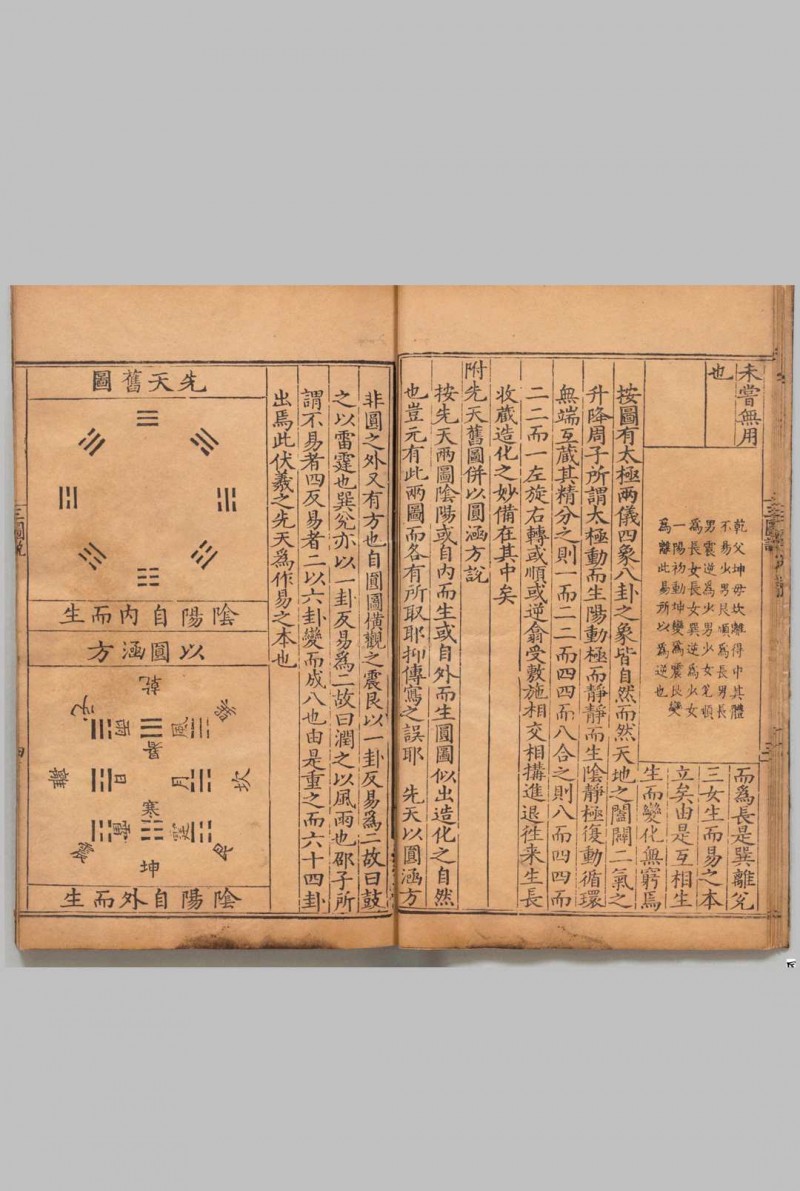 未嘗無用
也
乾父坤母坎離得中其體
不易少男艮順爲長男長
男震逆爲少男少女兌順
爲長女長女巽逆爲少女
一陽初動坤變爲震長變
爲離此易所以爲逆也
而爲長是巽離兌
三女生而易之本
立矣由是互相生
生而變化無窮焉
按圖有太極兩儀四象八卦之象皆自然而然天地之闔闢二氣之
升降周子所謂太極動而生陽動極而靜靜而生陰靜極復動循環
無端互蔵其精分之則一而二二而四四而八合之則八而四四而
二二而一左旋右轉或順或逆翕受敷施相交相搆進退徃来生長
收蔵造化之妙備在其中矣
附先天舊圖併以圓涵方說
按先天兩圖陰陽或自内而生或自外而生圓圖似出造化之自然
也豈元有此兩圖而各有所取耶抑傳寫之誤耶 先天以圓涵方
非圓之外又有方也自圓圖横觀之震艮以一卦反易爲二故曰鼓
之以雷霆也巽兌亦以一卦反易爲二故曰潤之以風雨也邵子所
謂不易者四反易者二以六卦變而成八也由是重之而六十四卦
出焉此伏羲之先天爲作易之本也
先天舊圖
陰陽自内而生
以圓涵方
乾
兌
雨
風
巽
暑
離
日
月
坎
寒
震
雷
霆
艮
坤
陰陽自外而生
三圖說
四